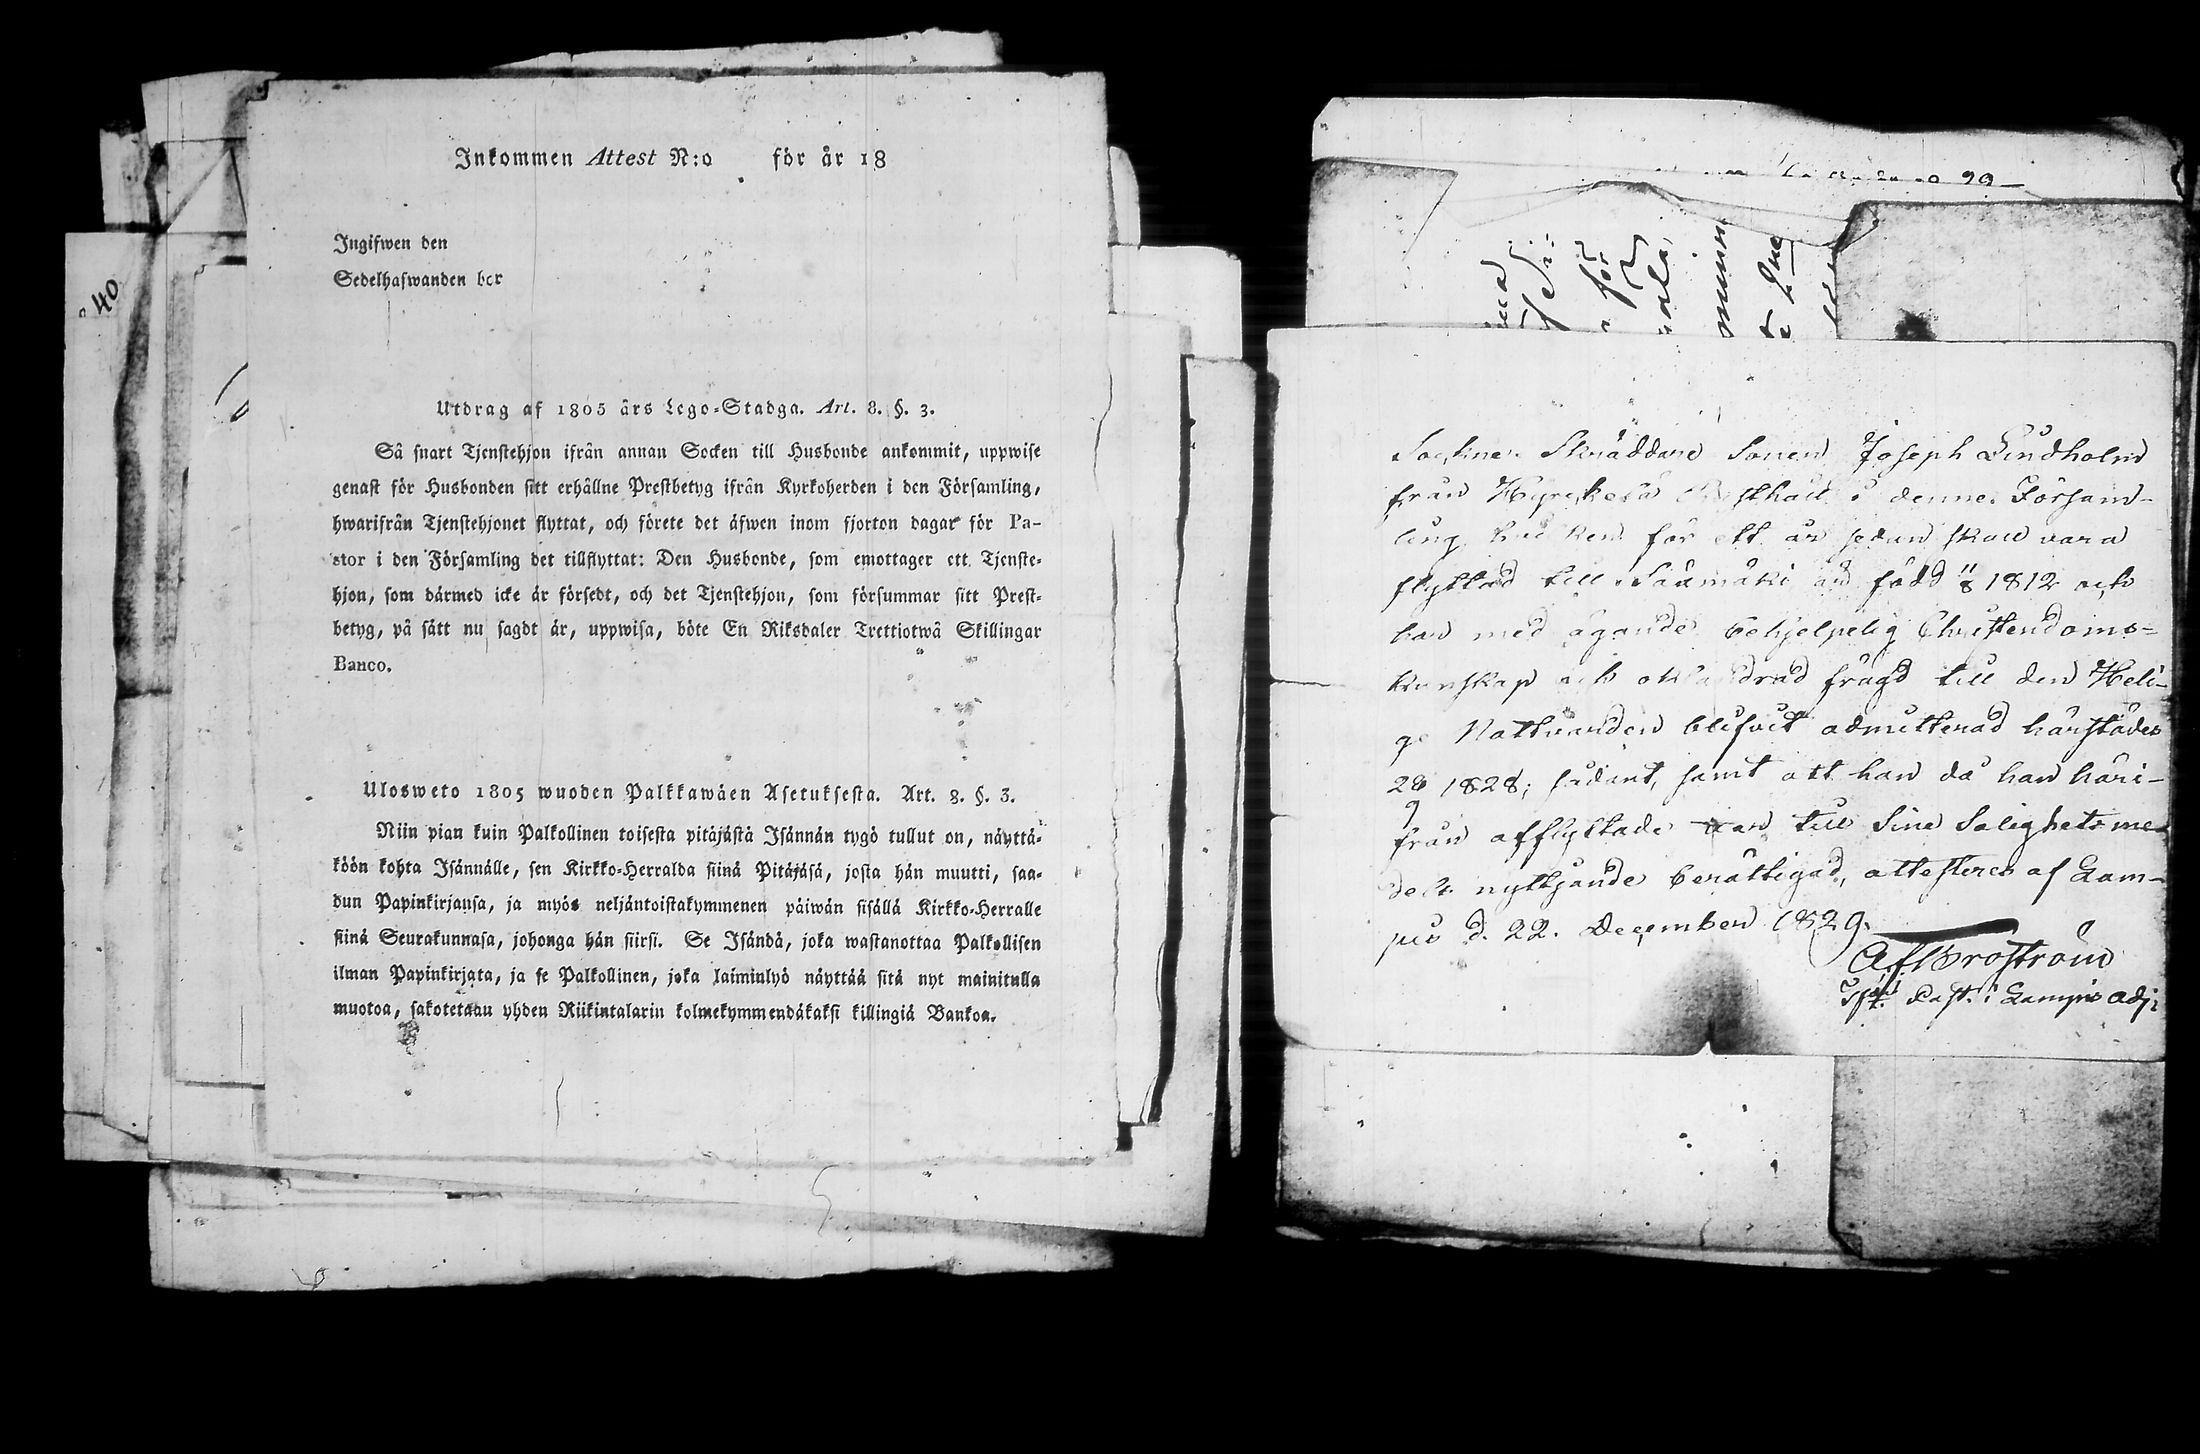 40
Inkommen Attest N:o för år 18
Ingifwen den
Sedelhafwanden bor
Utdrag af 1805 års Lego-Stadga. Art. 8. §. 3.
Så snart Tjenstehjon ifrån annan Socken till Husbonde ankommit, uppwise
genast för Husbonden sitt erhållne Prestbetyg ifrån Kyrkoherden i den Församling,
hwarifrån Tjenstehjonet flyttat, och förete det äfwen inom fjorton dagar för Pa-
stor i den Församling det tillflyttat: Den Husbonde, som emottager ett Tjenste-
hjon, som därmed icke är försedt, och det Tjenstehjon, som försummar sitt Prest-
betyg, på sätt nu sagdt är, uppwisa, böte En Riksdaler Trettiotwå Skillingar
Banco.
Ulosweto 1805 wuoden Palkkawäen Asetuksesta. Art. 8. §. 3.
Niin pian kuin Palkollinen toisesta pitäjästä Isännän tygö tullut on, näyttä-
köön kohta Isännälle, sen Kirkko-Herralda siinä Pitäjäsä, josta hän muutti, saa-
dun Papinkirjansa, ja myös neljäntoistakymmenen päiwän sisällä Kirkko-Herralle
siinä Seurakunnasa, johonga hän siirsi. Se Isändä, joka wastanottaa Palkollisen
ilman Papinkirjata, ja se Palkollinen, joka laiminlyö näyttää sitä nyt mainitulla
muotoa, sakotetaan yhden Riikintalarin kolmekymmendäkaksi killingiä Bankoa.
Sockne Skräddare Sonen Joseph Lindholm
från i denne Försam-
ling, hvilken för ett år sedan skall vara
flyttad till Säämäki är född 11/8 1812 och
har med ägande behjelpelig Christendoms-
kunskap och oklandrad frägd till den Heli-
ge Nattvarden blifvit admitterad härstädes
28/9 1828; sådant, samt att han då han häri-
från afflyttade var till Sine Salighets me-
dels nyttjande berättigad, attesteres af Lam-
pis d. 22. December 1829.
A. f. Broström
Past. i Lampis adj: